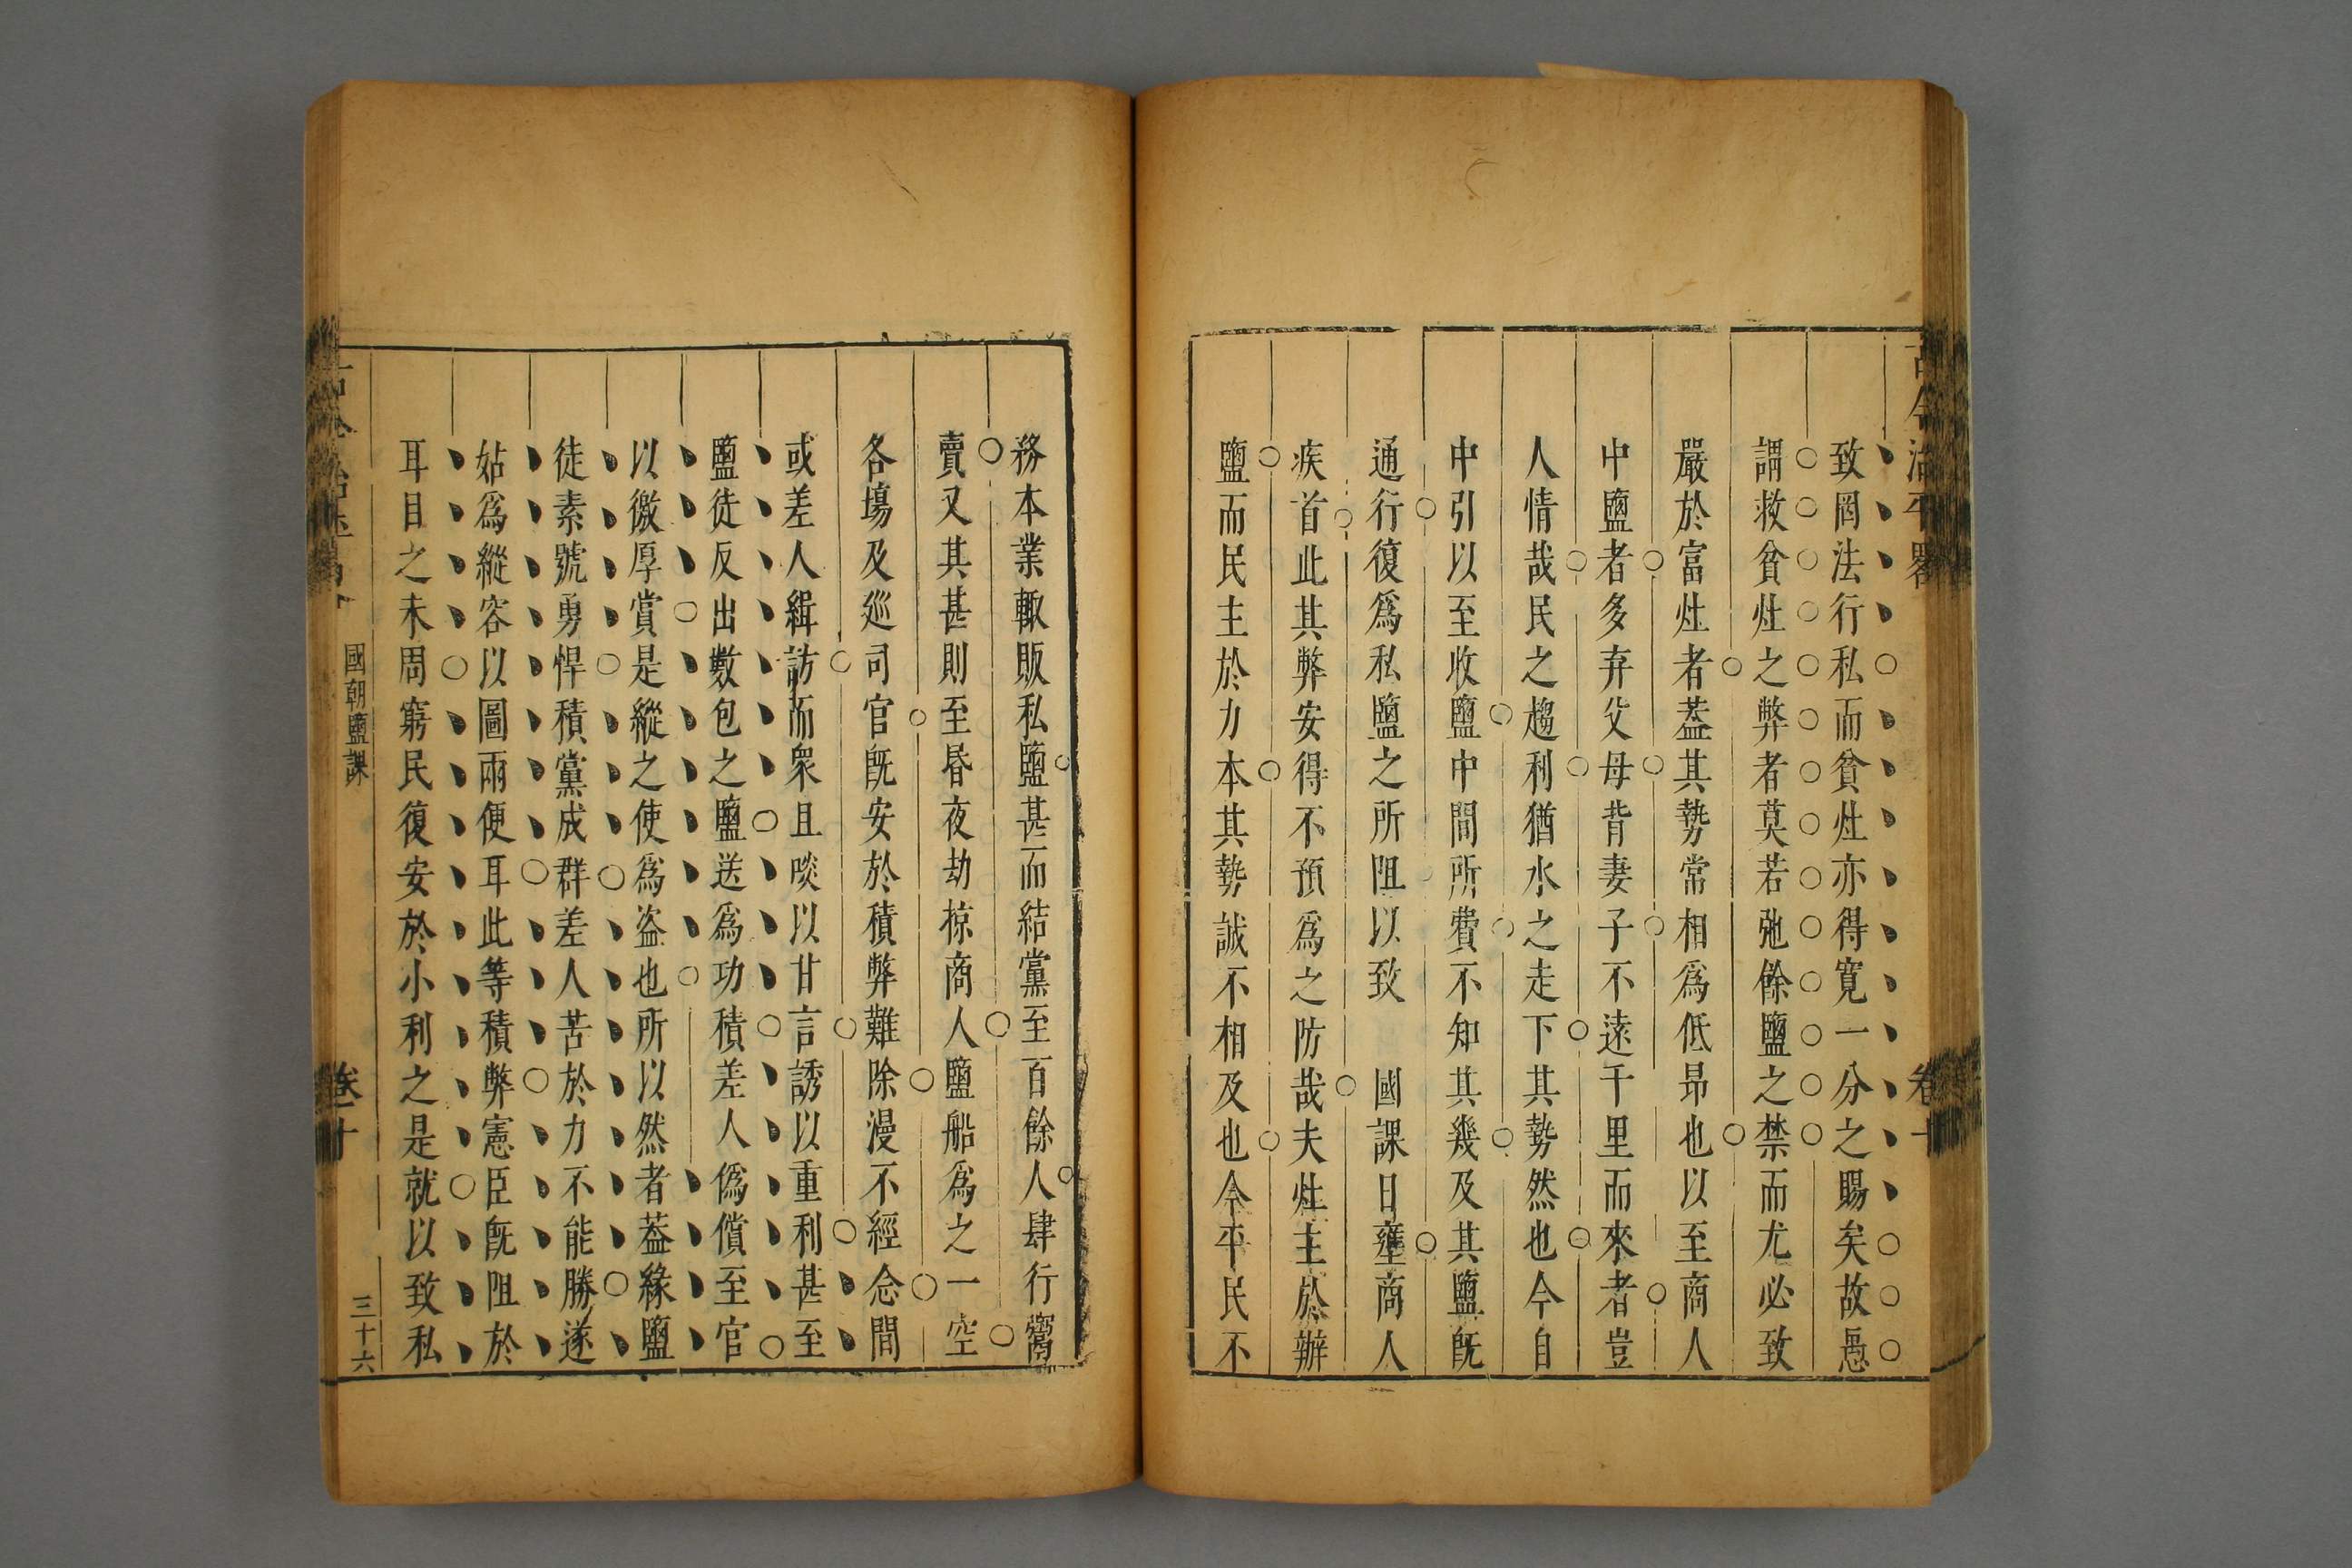 致罔法行私而貧灶亦得寬一分之賜矣故愚
謂救貧灶之弊者莫若弛餘鹽之禁而尤必致
嚴於富灶者葢其勢常相爲低昂也以至商人
中鹽者多弃父母背妻子不遠千里而來者豈
人情哉民之趨利猶水之走下其勢然也今自
中引以至收鹽中間所費不知其幾及其鹽旣
通行復爲私鹽之所阻以致　國課日壅商人
疾首此其弊安得不預爲之防哉夫灶主於辦
鹽而民主於力本其勢誠不相及也今平民不
務本業輙販私鹽甚而結黨至百餘人肆行鬻
賣又其甚則至昏夜劫掠商人鹽船爲之一空
各塲及廵司官旣安於積弊難除漫不經念間
或差人緝訪而衆且啖以甘言誘以重利甚至
鹽徒反出數包之鹽送爲功積差人僞償至官
以徼厚賞是縱之使爲盗也所以然者葢緣鹽
徒素號勇悍積黨成群差人苦於力不能勝遂
姑爲縱容以圖兩便耳此等積弊憲臣旣阻於
耳目之未周窮民復安於小利之是就以致私
國朝鹽課
卷十
三十六